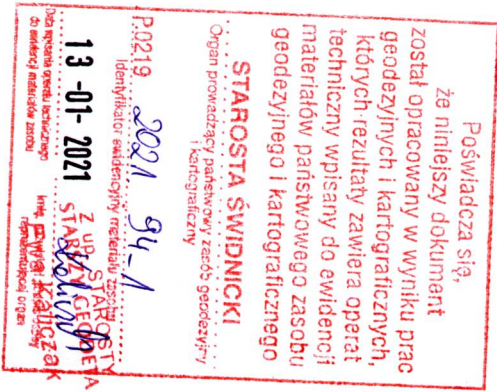 Poświadcza się,
że niniejszy dokument
został opracowany w wyniku prac
geodezyjnych i kartograficznych,
których rezultaty zawiera operat
techniczny wpisany do ewidencji
materiałów państwowego zasobu
geodezyjnego i kartograficznego
STAROSTA ŚWIDNICKI
Organ prowadzący państwowy zasób geodezyjny
i kartograficzny
P.0219 2021 94-1
Identyfikator ewidencyjny materiału zasobu
13 -01- 2021
Data wpisania operatu technicznego
do ewidencji materiałów zasobu
Z up. STAROSTY
STARSZY GEODETA
Kaliczak
reprezentującej organ